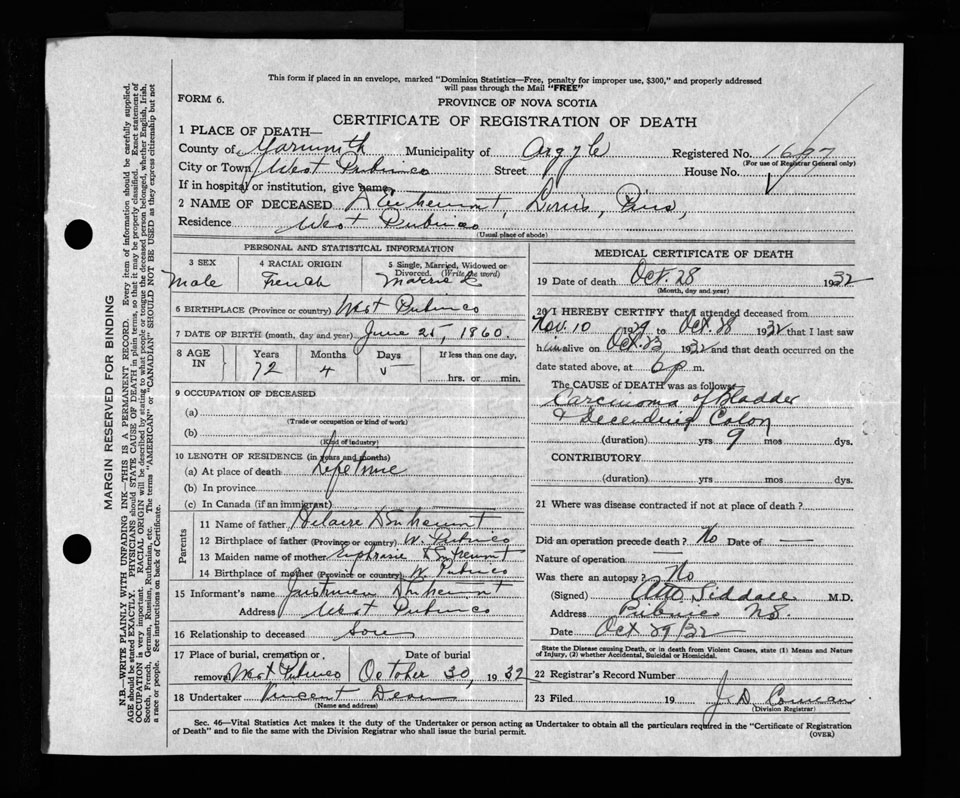 This form if placed in an envelope, marked "Dominion Statistics—Free, penalty for improper use, $300," and properly addressed
will pass through the Mail "FREE"
FORM 6.
PROVINCE OF NOVA SCOTIA
CERTIFICATE OF REGISTRATION OF DEATH
1 PLACE OF DEATH—
County of Yarmouth Municipality of Argyle Registered No. 1697
(For use of Registrar General only)
City or Town West Pubnico Street House No.
If in hospital or institution, give name
2 NAME OF DECEASED D'Entremont, Louis, Pius,
Residence West Pubnico
(Usual place of abode)
PERSONAL AND STATISTICAL INFORMATION
3 SEX 4 RACIAL ORIGIN 5 Single, Married, Widowed or
Divorced. (Write the word)
Male French Married
6 BIRTHPLACE (Province or country) West Pubnico
7 DATE OF BIRTH (month, day and year) June 25, 1860.
8 AGE IN Years Months Days If less than one day,
72 4 5 hrs. or min.
9 OCCUPATION OF DECEASED
(a)
(Trade or occupation or kind of work)
(b)
(Kind of industry)
10 LENGTH OF RESIDENCE (in years and months)
(a) At place of death Life time
(b) In province
(c) In Canada (if an immigrant)
Parents
11 Name of father Hilaire D'Entremont
12 Birthplace of father (Province or country) W. Pubnico
13 Maiden name of mother Euphrasie D'Entremont
14 Birthplace of mother (Province or country) W. Pubnico
15 Informant's name D'Entremont
Address West Pubnico
16 Relationship to deceased Son
17 Place of burial, cremation or Date of burial
removal West Pubnico October 30, 1932
18 Undertaker Vincent
(Name and address)
MEDICAL CERTIFICATE OF DEATH
19 Date of death Oct. 28 1932
(Month, day and year)
20 I HEREBY CERTIFY that I attended deceased from
Nov. 10 1929 to Oct. 28 1932 that I last saw
him alive on Oct. 23 1932 and that death occurred on the
date stated above, at p m.
The CAUSE of DEATH was as follows:
Carcinoma of Bladder
& Decending Colon
(duration) yrs 9 mos dys.
CONTRIBUTORY
(duration) yrs mos dys.
21 Where was disease contracted if not at place of death?
Did an operation precede death? No Date of —
Nature of operation —
Was there an autopsy? No
(Signed) Siddall M.D.
Address Pubnico N.S.
Date Oct 29/32
State the Disease causing Death, or in death from Violent Causes, state (1) Means and Nature
of Injury, (2) whether Accidental, Suicidal or Homicidal.
22 Registrar's Record Number
23 Filed 19 J. D.
(Division Registrar)
Sec. 46—Vital Statistics Act makes it the duty of the Undertaker or person acting as Undertaker to obtain all the particulars required in the "Certificate of Registration
of Death" and to file the same with the Division Registrar who shall issue the burial permit. (OVER)
MARGIN RESERVED FOR BINDING
N.B.—WRITE PLAINLY WITH UNFADING INK—THIS IS A PERMANENT RECORD. Every item of information should be carefully supplied.
AGE should be stated EXACTLY. PHYSICIANS should STATE CAUSE OF DEATH in plain terms, so that it may be properly classified. Exact statement of
OCCUPATION is very important. RACIAL ORIGIN will be described by stating to what people or tongue the deceased person belonged, whether English, Irish,
Scotch, French, German, Russian, Ruthenian, etc. The terms "AMERICAN" or "CANADIAN" SHOULD NOT BE USED as they express citizenship but not
a race or people. See instructions on back of Certificate.